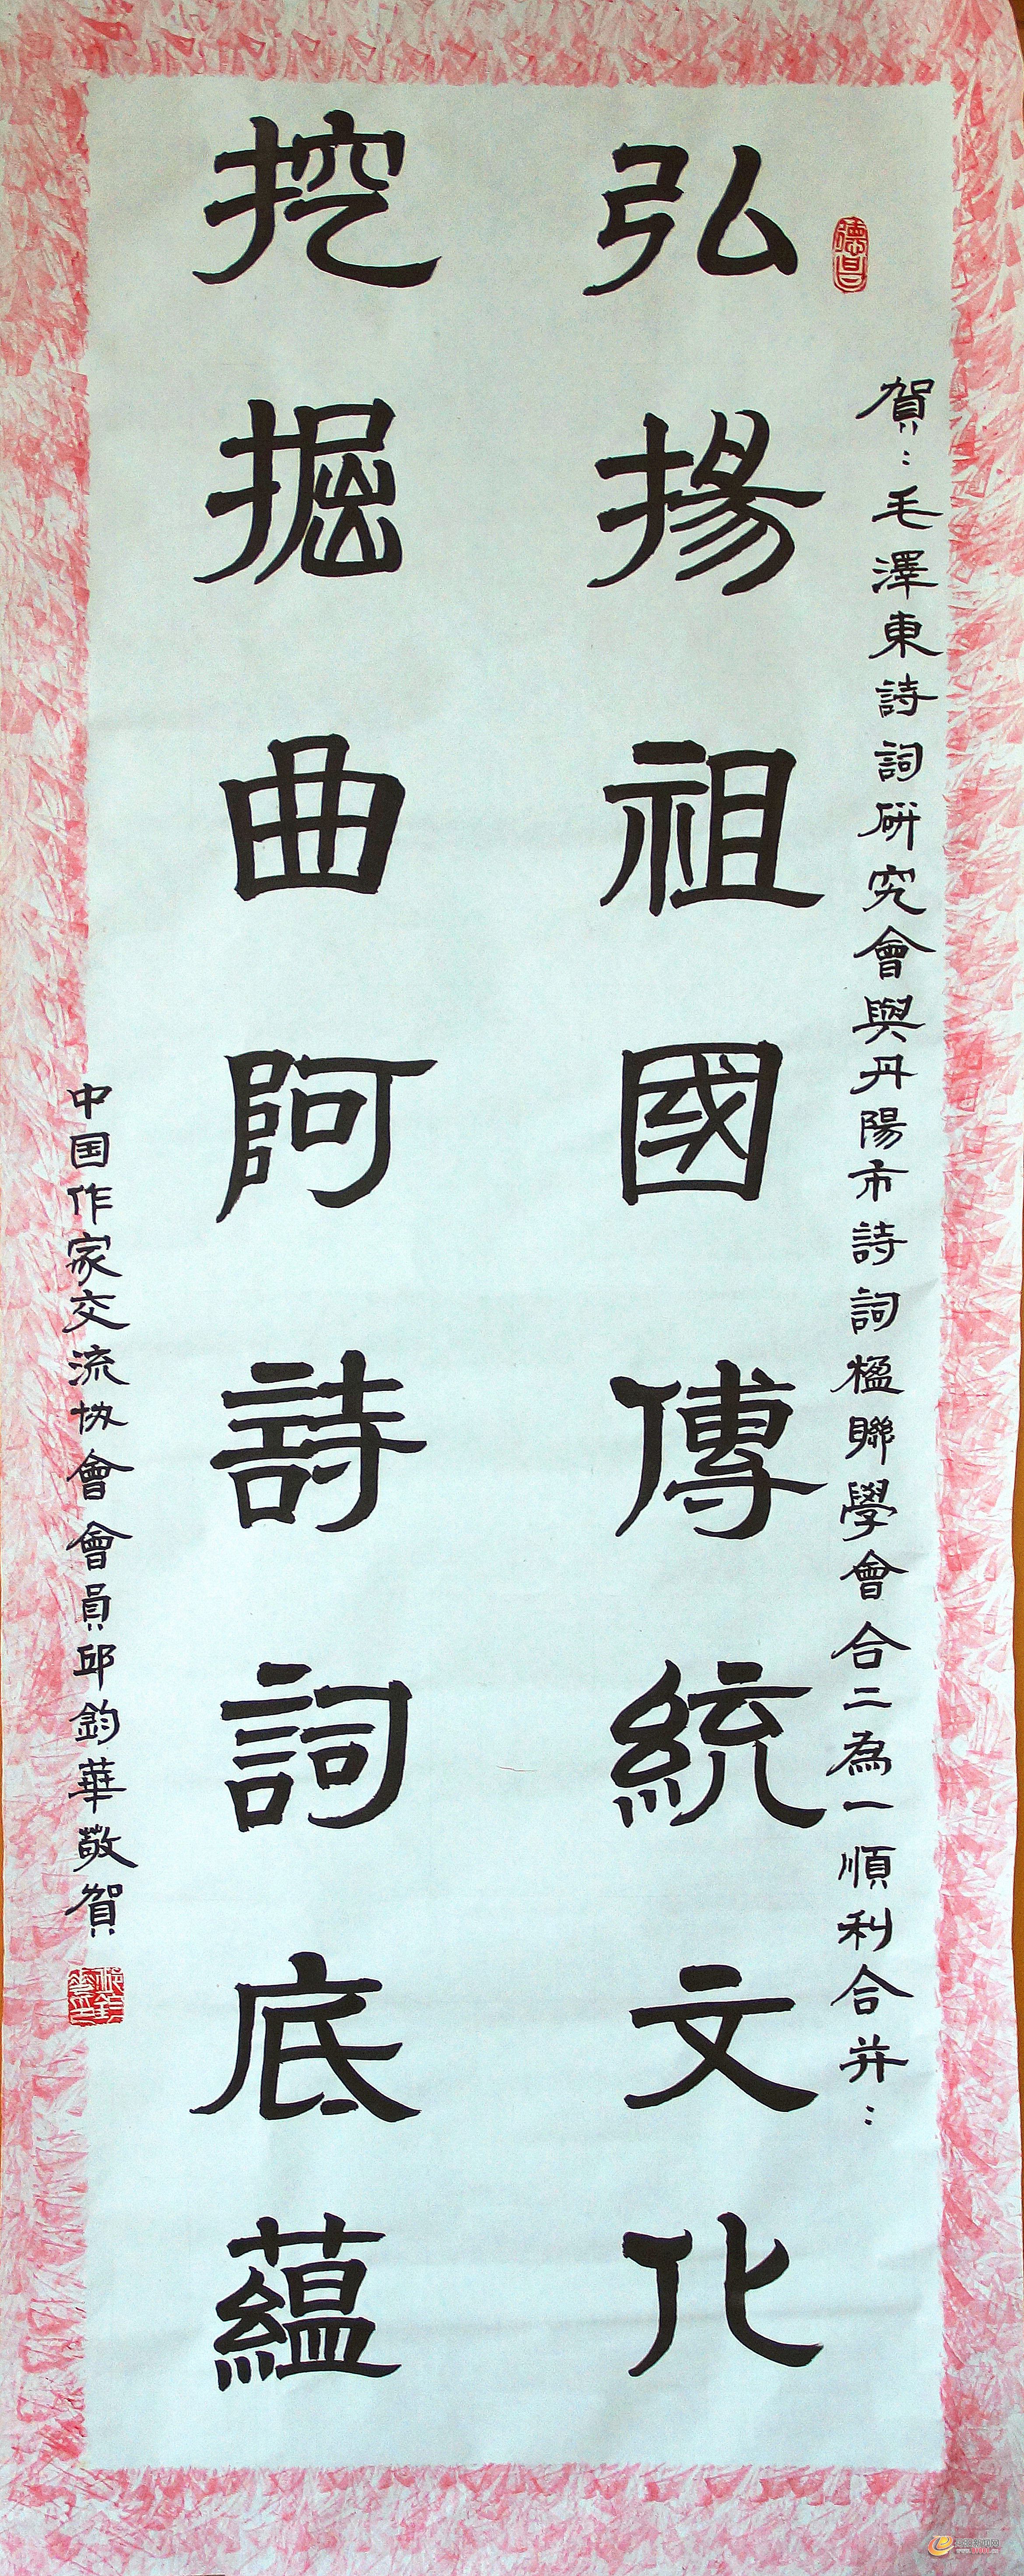 德昌
賀：毛澤東詩詞研究會與丹陽市詩詞楹聯學會合二為一順利合并：
弘揚祖國傳統文化
挖掘曲阿詩詞底蘊
中国作家交流协會會員邱鈞華敬賀